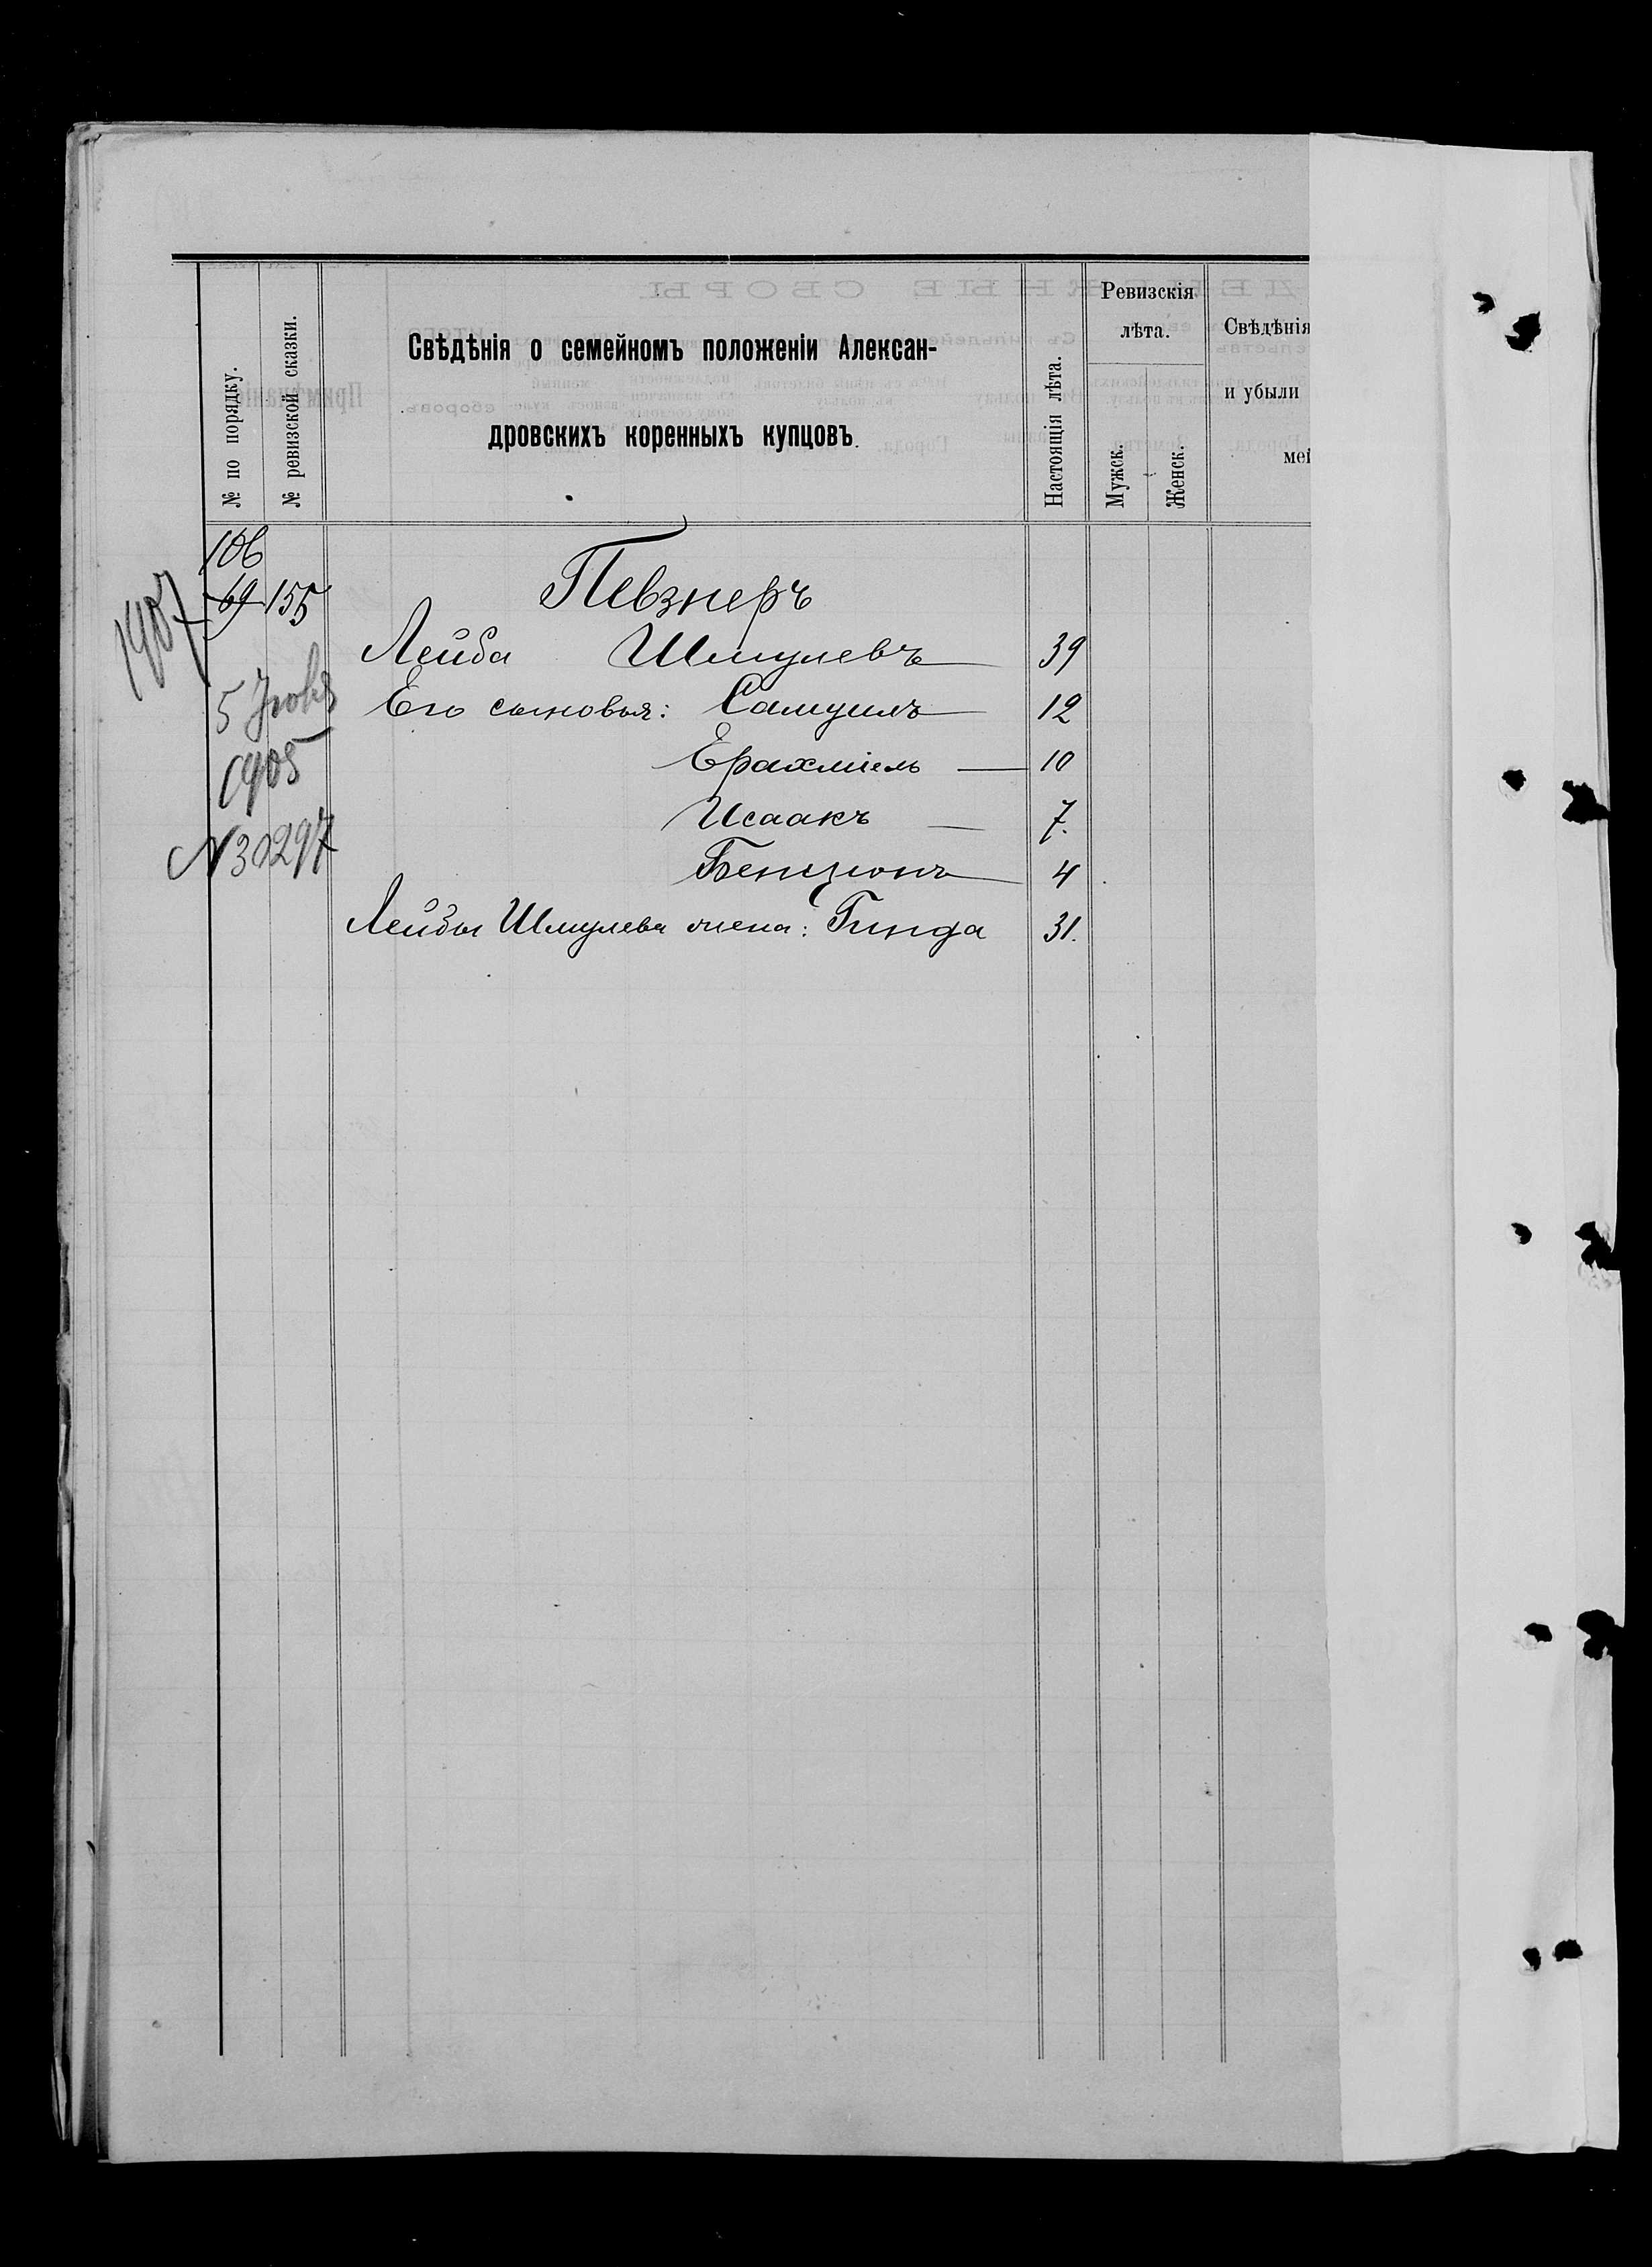 № по порядку.
№ ревизской сказки.
Свѣдѣнія о семейномъ положеніи Алексан-
дровскихъ коренныхъ купцовъ.
Настоящія лѣта.
Ревизскія
лѣта.
Мужск.
Женск.
Свѣдѣнія
и убыли
мей
106
69 155
1907
Певзнеръ
Лейба Шмулевъ 39
5
Его сыновья: Самуилъ 12
1905
Ерахміель 10
N30297
Исаакъ 7.
Бенціонъ 4
Лейбы Шмулева жена: Гинда 31.